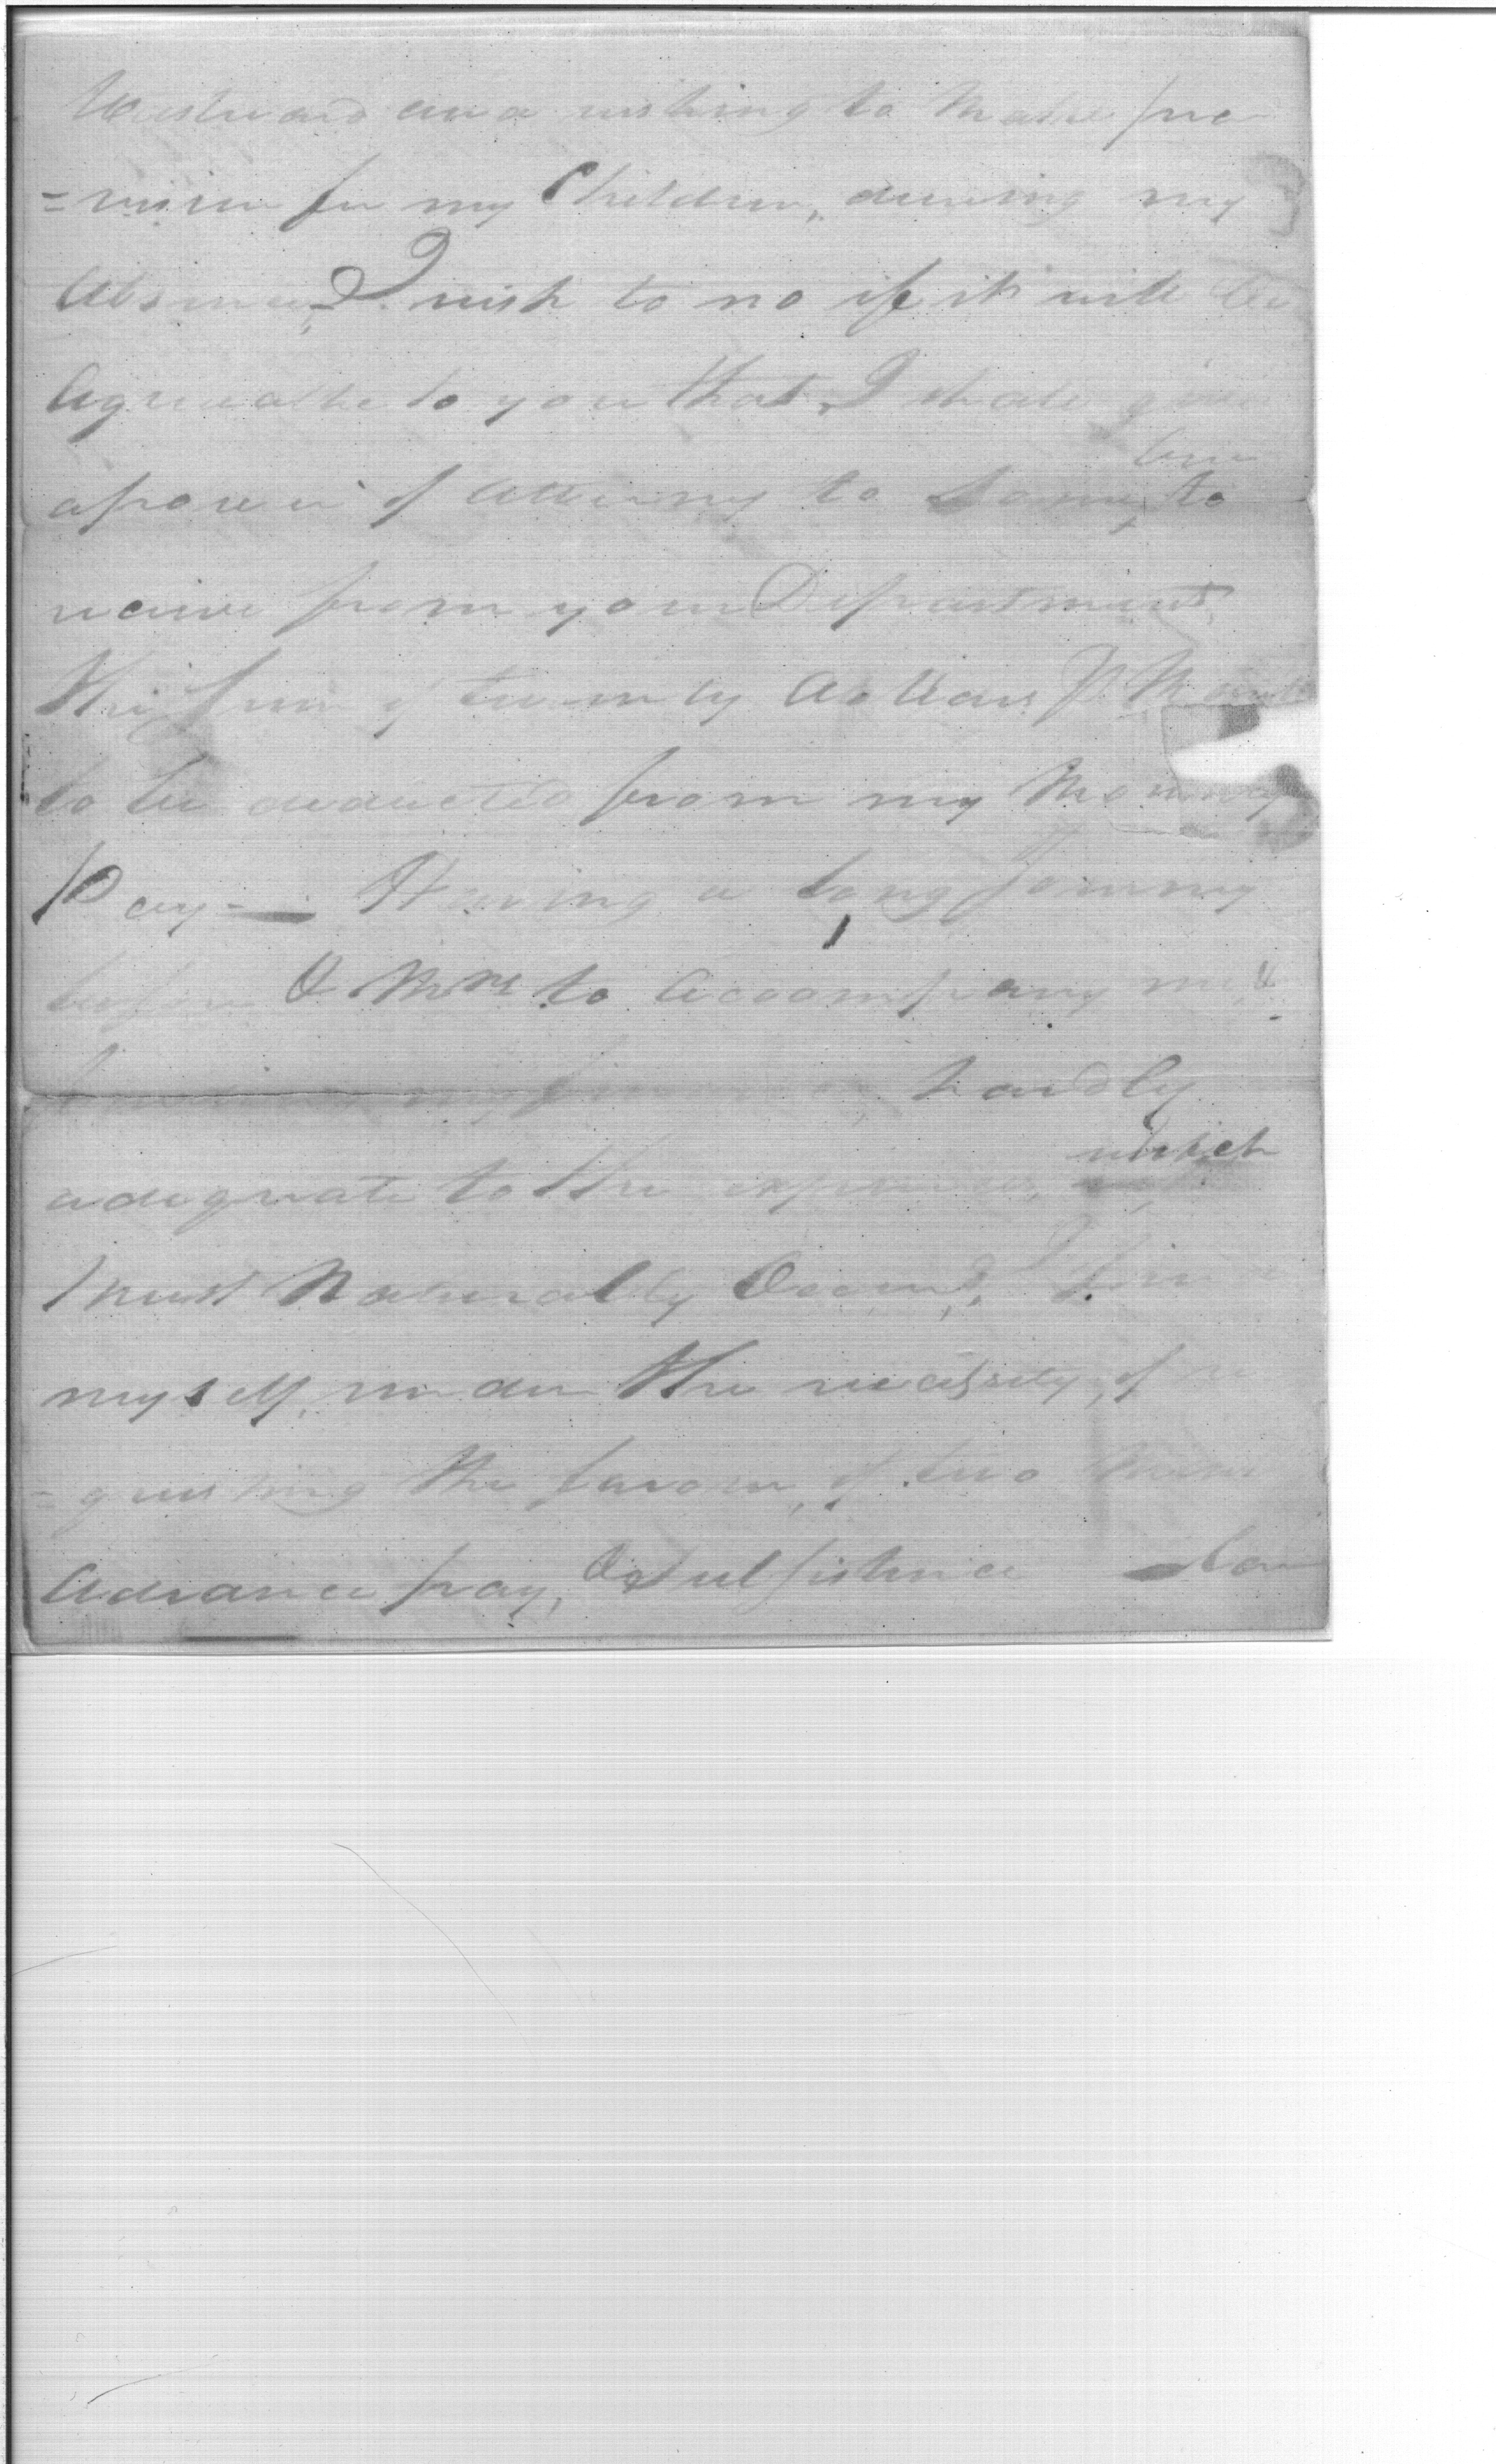 Westward and wishing to Make pro
=vision for my Children, during my
Absence, I wish to no if it will be
Agreeable to you that I shall give
one
a power of Atterny to some, to
receive from your Department
the sum of twenty dollars P. Month
to be deducted from my Monthly
Pay — Having a long Journey
before & to Accompany me, &
hardly
which
adequate to the expences,
I must Naturally Occur, I find
myself under the necessity, of re
=questing the favour, of two
Advance pay, & Subsistence